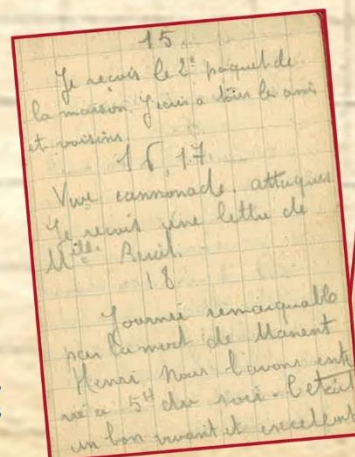 15.
Je reçois le 2e paquet de
la maison. J'écris a tous les amis
et voisins.
16, 17.
Vive cannonade, attaques
Je reçois une lettre de
Mlle.
18
Journée remarquable
par la mort de Manent
Henri Nous l'avons enter
ré a 5H du soir. C'était
un bon vivant et excellent